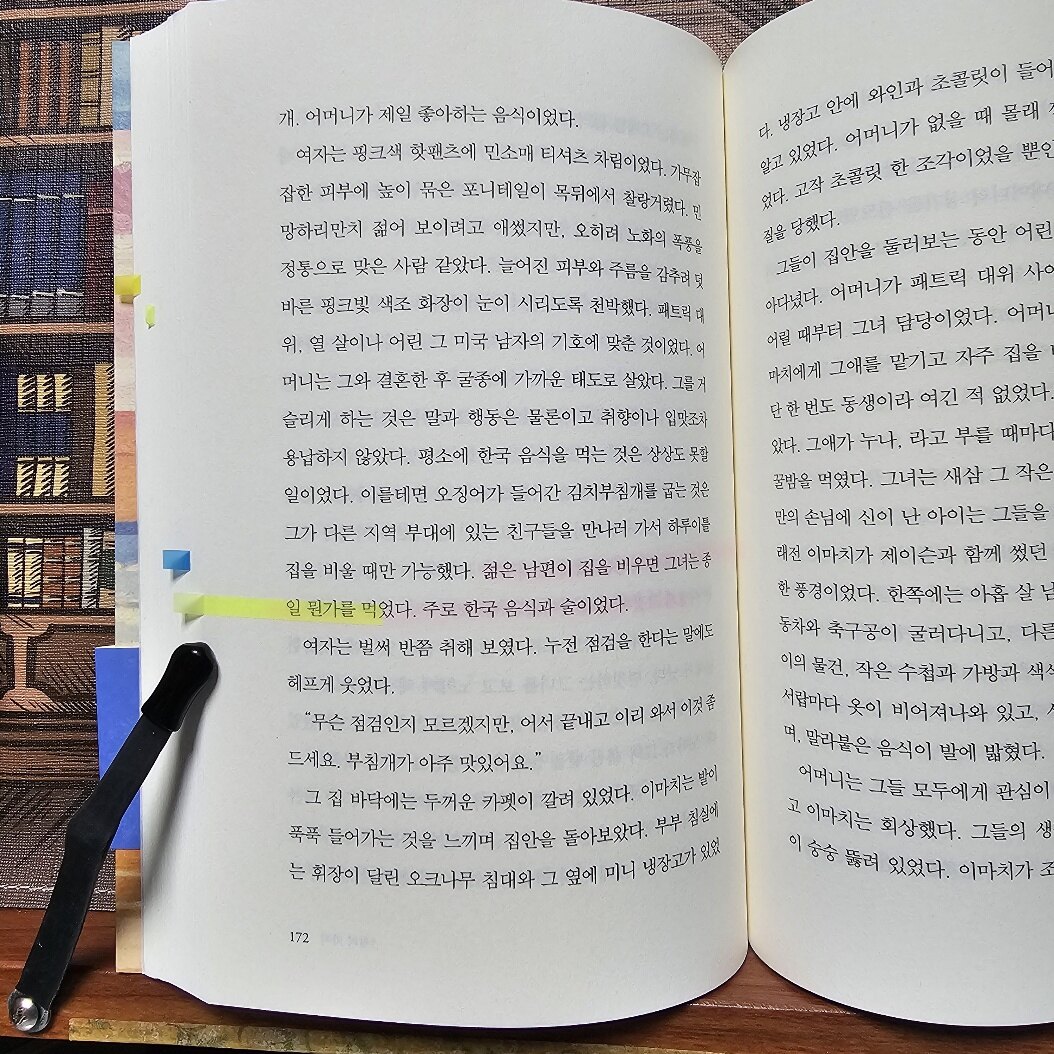 개. 어머니가 제일 좋아하는 음식이었다.
여자는 핑크색 핫팬츠에 민소매 티셔츠 차림이었다. 가무잡
잡한 피부에 높이 묶은 포니테일이 목뒤에서 찰랑거렸다. 민
망하리만치 젊어 보이려고 애썼지만, 오히려 노화의 폭풍을
정통으로 맞은 사람 같았다. 늘어진 피부와 주름을 감추려 덧
바른 핑크빛 색조 화장이 눈이 시리도록 천박했다. 패트릭 대
위, 열 살이나 어린 그 미국 남자의 기호에 맞춘 것이었다. 어
머니는 그와 결혼한 후 굴종에 가까운 태도로 살았다. 그를 거
슬리게 하는 것은 말과 행동은 물론이고 취향이나 입맛조차
용납하지 않았다. 평소에 한국 음식을 먹는 것은 상상도 못할
일이었다. 이를테면 오징어가 들어간 김치부침개를 굽는 것은
그가 다른 지역 부대에 있는 친구들을 만나러 가서 하루이틀
집을 비울 때만 가능했다. 젊은 남편이 집을 비우면 그녀는 종
일 뭔가를 먹었다. 주로 한국 음식과 술이었다.
여자는 벌써 반쯤 취해 보였다. 누전 점검을 한다는 말에도
헤프게 웃었다.
“무슨 점검인지 모르겠지만, 어서 끝내고 이리 와서 이것 좀
드세요. 부침개가 아주 맛있어요.”
그 집 바닥에는 두꺼운 카펫이 깔려 있었다. 이마치는 발이
푹푹 들어가는 것을 느끼며 집안을 돌아보았다. 부부 침실에
는 휘장이 달린 오크나무 침대와 그 옆에 미니 냉장고가 있었
172
다. 냉장고 안에 와인과 초콜릿이 들어
알고 있었다. 어머니가 없을 때 몰래
었다. 고작 초콜릿 한 조각이었을 뿐인
질을 당했다.
그들이 집안을 둘러보는 동안 어린
아다녔다. 어머니가 패트릭 대위 사이
어릴 때부터 그녀 담당이었다. 어머니
마치에게 그애를 맡기고 자주 집을
단 한 번도 동생이라 여긴 적 없었다.
았다. 그애가 누나, 라고 부를 때마다
꿀밤을 먹였다. 그녀는 새삼 그 작은
만의 손님에 신이 난 아이는 그들을
래전 이마치가 제이슨과 함께 썼던
한 풍경이었다. 한쪽에는 아홉 살 남
동차와 축구공이 굴러다니고, 다른
이의 물건, 작은 수첩과 가방과 색색
서랍마다 옷이 비어져나와 있고,
며, 말라붙은 음식이 발에 밟혔다.
어머니는 그들 모두에게 관심이
고 이마치는 회상했다. 그들의 생
이 숭숭 뚫려 있었다. 이마치가